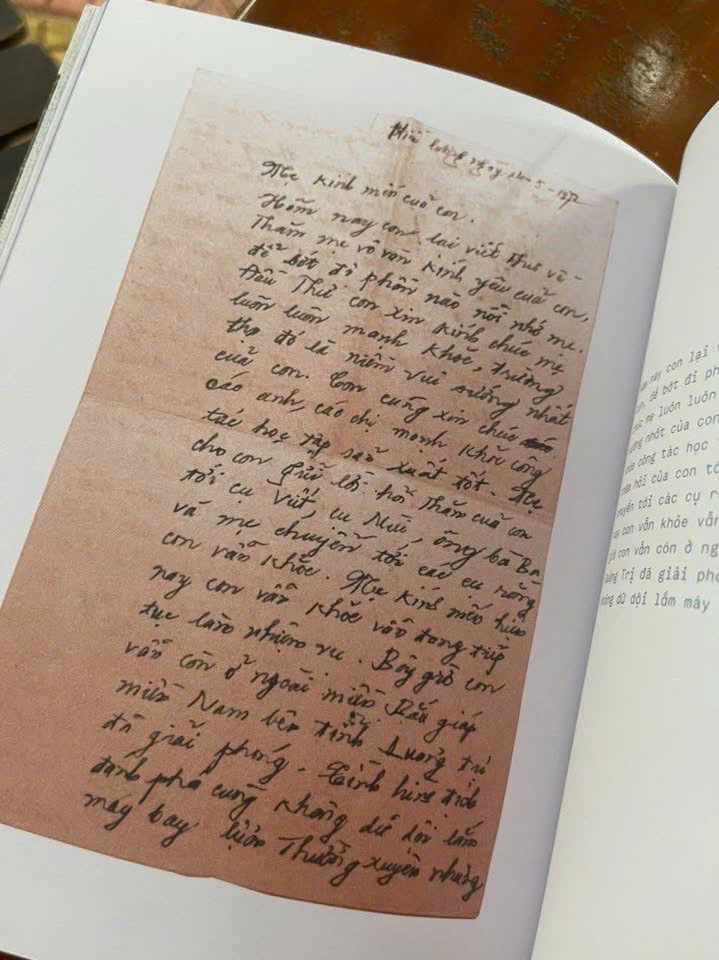 Hiền Lương ngày 20-5-1972
Mẹ kính mến của con.
Hôm nay con lại viết thư về
Thăm mẹ vô vàn kính yêu của con,
để bớt đi phần nào nỗi nhớ mẹ.
Đầu Thư con xin kính chúc mẹ
luôn luôn mạnh khỏe, trường
thọ đó là niềm vui sướng nhất
của con. Con cũng xin chúc các
các anh, các chị mạnh khỏe công
tác học tập sản xuất tốt. Mẹ
cho con gửi lời hỏi Thăm của con
tới cụ Viết, cụ Mùi, ông bà Ba
và mẹ chuyển tới các cụ rằng
con vẫn khỏe. Mẹ kính mến hiện
nay con vẫn khỏe vẫn đang tiếp
tục làm nhiệm vụ. Bây giờ con
vẫn còn ở ngoài miền Bắc giáp
miền Nam bên tỉnh Quảng trị
đã giải phóng. Tình hình địch
đánh phá cũng không dữ dội lắm
máy bay lượn Thường xuyên nhưng
nay con lại v
n, để bớt đi ph
úc mẹ luôn luôn
ướng nhất của con
ỏe công tác học
hăm hỏi của con tớ
huyển tới các cụ r
ay con vẫn khỏe vẫ
giờ con vẫn còn ở ng
uảng Trị đã giải phó
hông dữ dội lắm máy